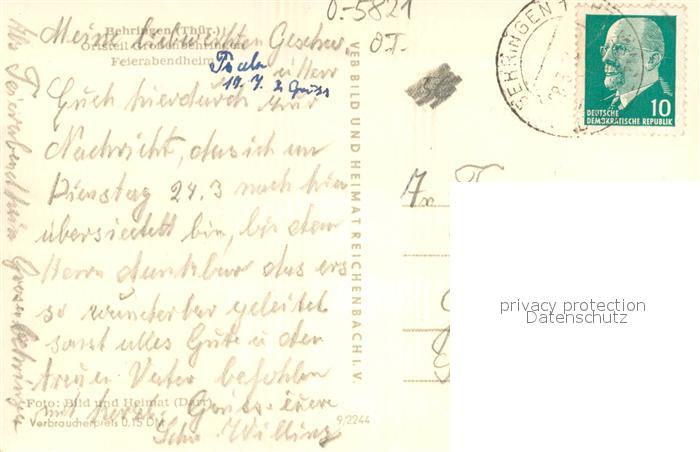 0-5821
O.T.
Behringen (Thür.)
Ortsteil Großenbehringen
Feierabendheim
Meine Geschw.
u Herr
17. 7. Gruss
Euch hierdurch zur
Nachricht, das ich am
Dienstag 24.3 nach hier
übersiedelt bin, bin dem
Herrn dankbar das ers
so wunderbar geleitet
sonst alles Gute u den
treuen Vater befohlen
mit herzl. Gruss eure
Schw. Willing
Feierabendheim Grossenbehringen
Foto: Bild und Heimat (Darr)
Verbraucherpreis 0,15 DM
9/2244
VEB BILD UND HEIMAT REICHENBACH I. V.
BEHRINGEN
10
DEUTSCHE
DEMOKRATISCHE REPUBLIK
An
privacy protection
Datenschutz